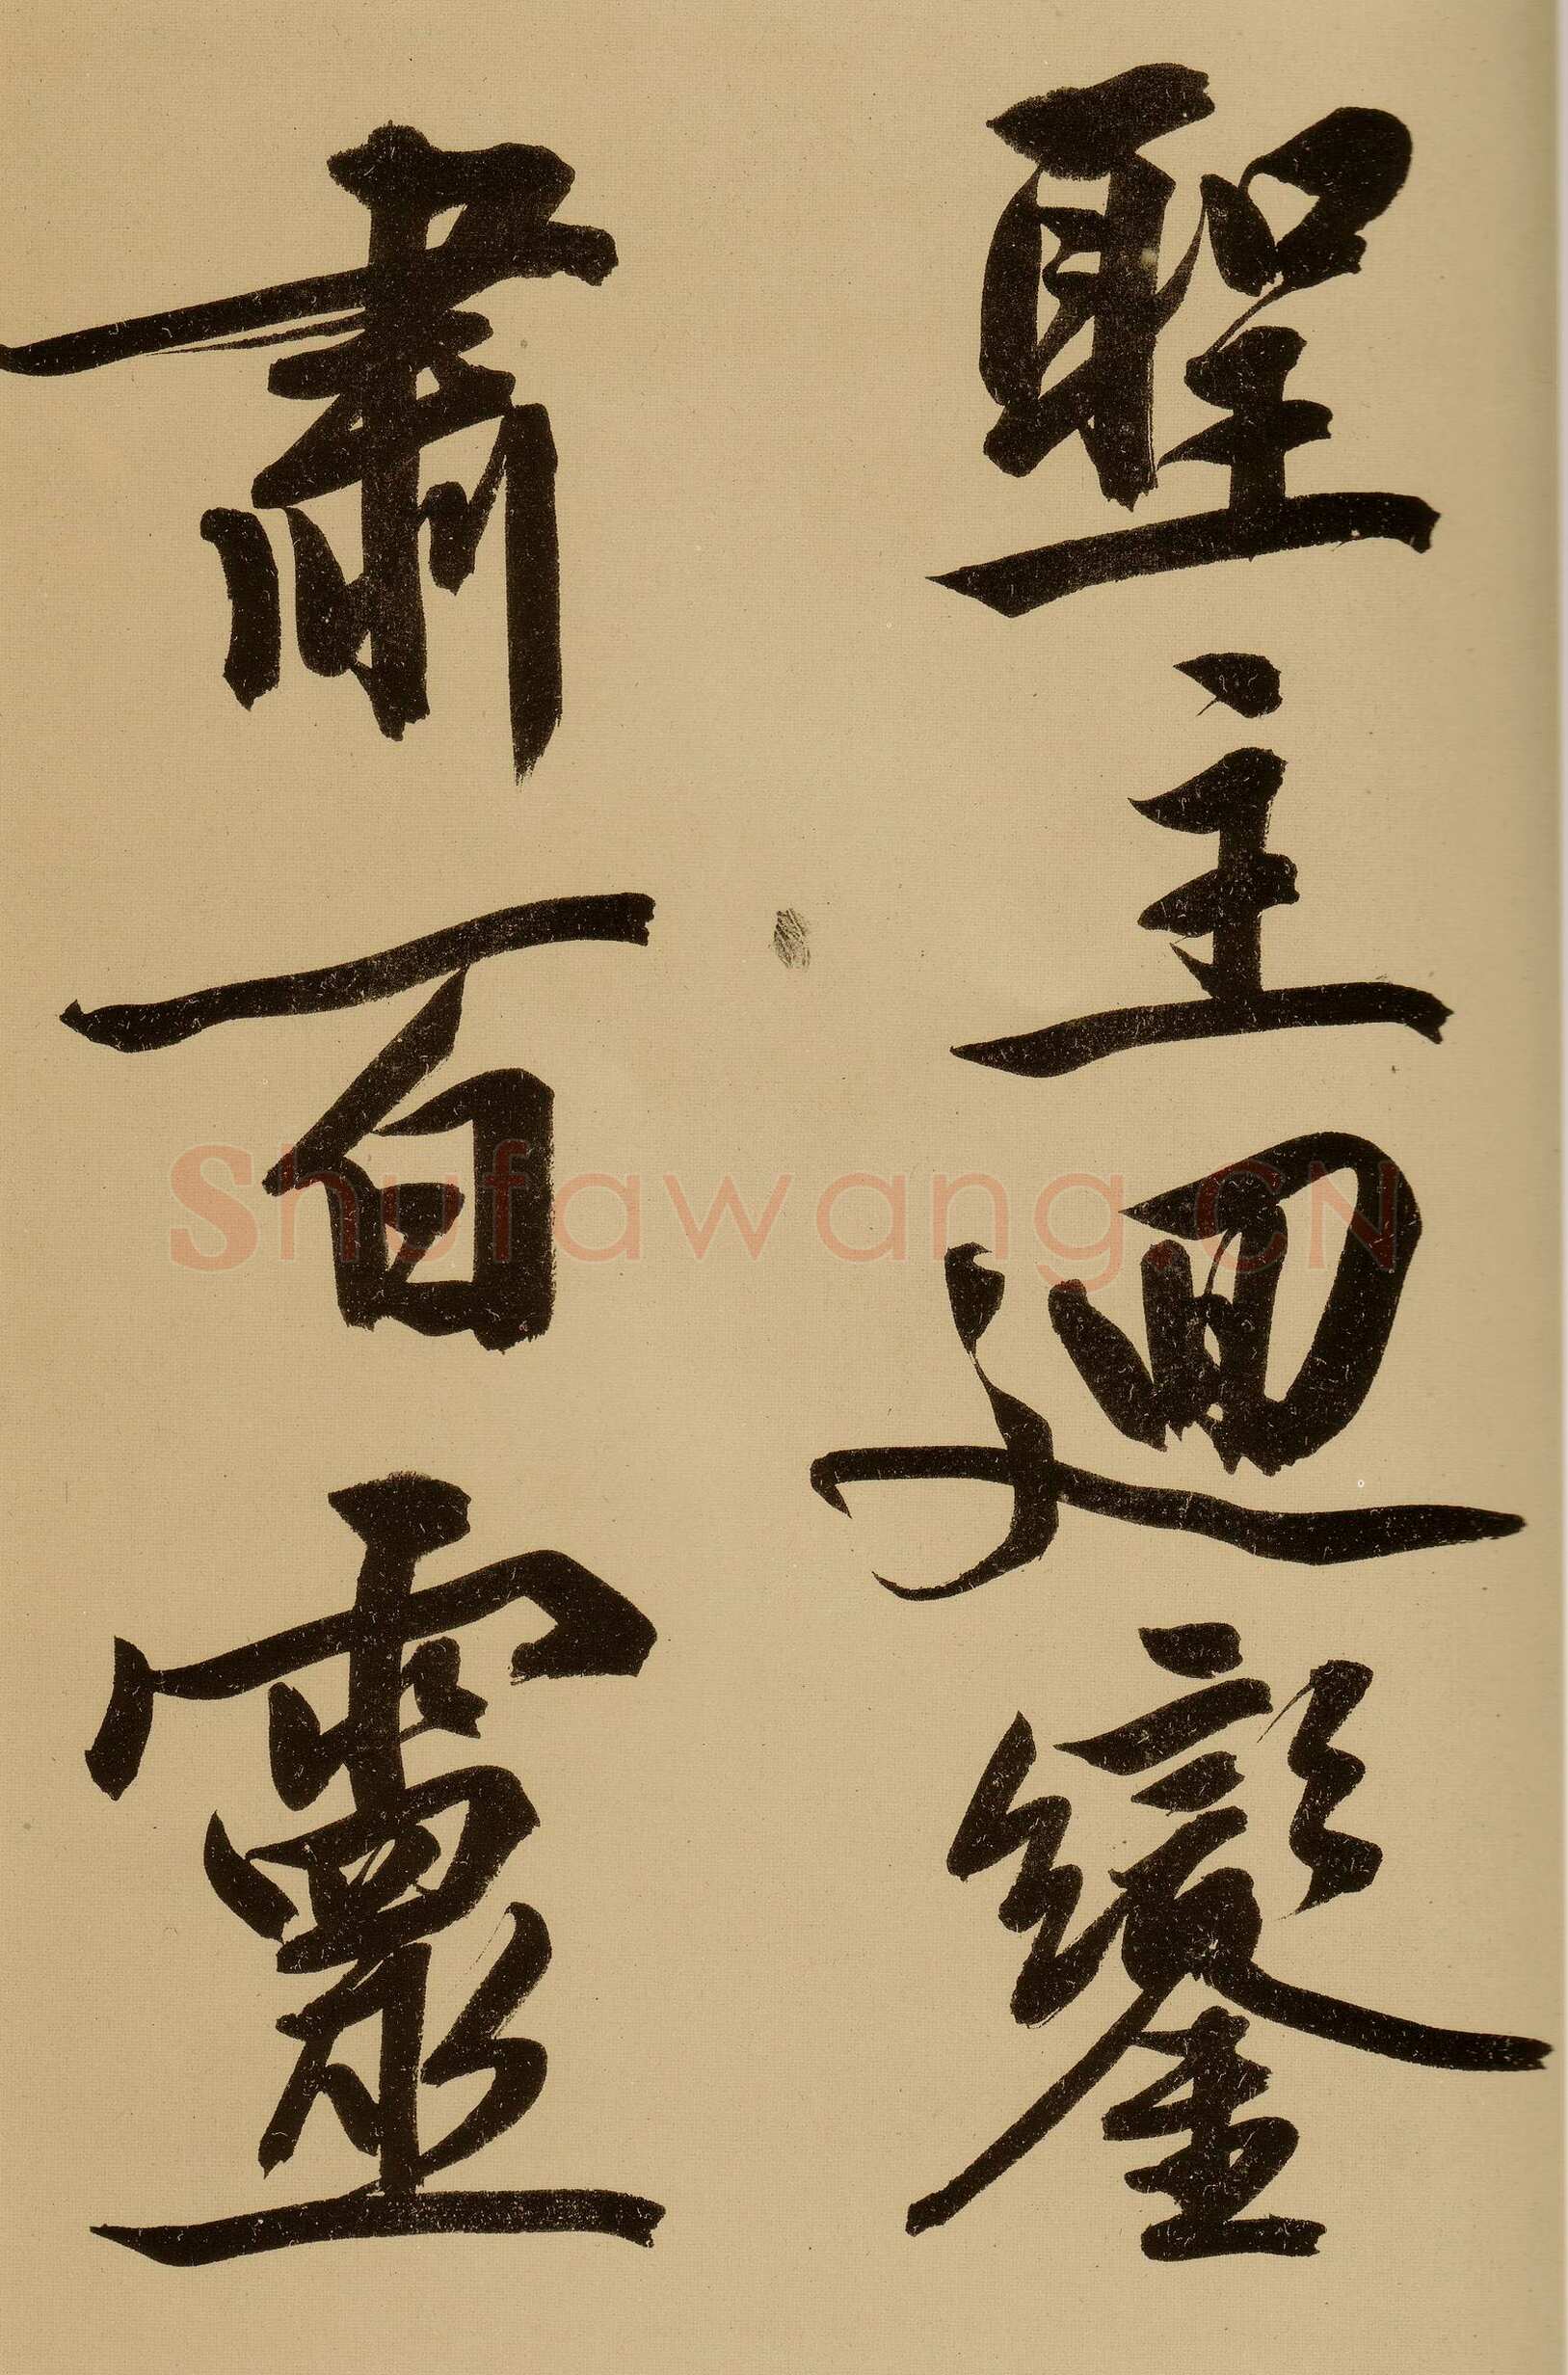 聖主迴鑾
肅百靈
shufawang.CN